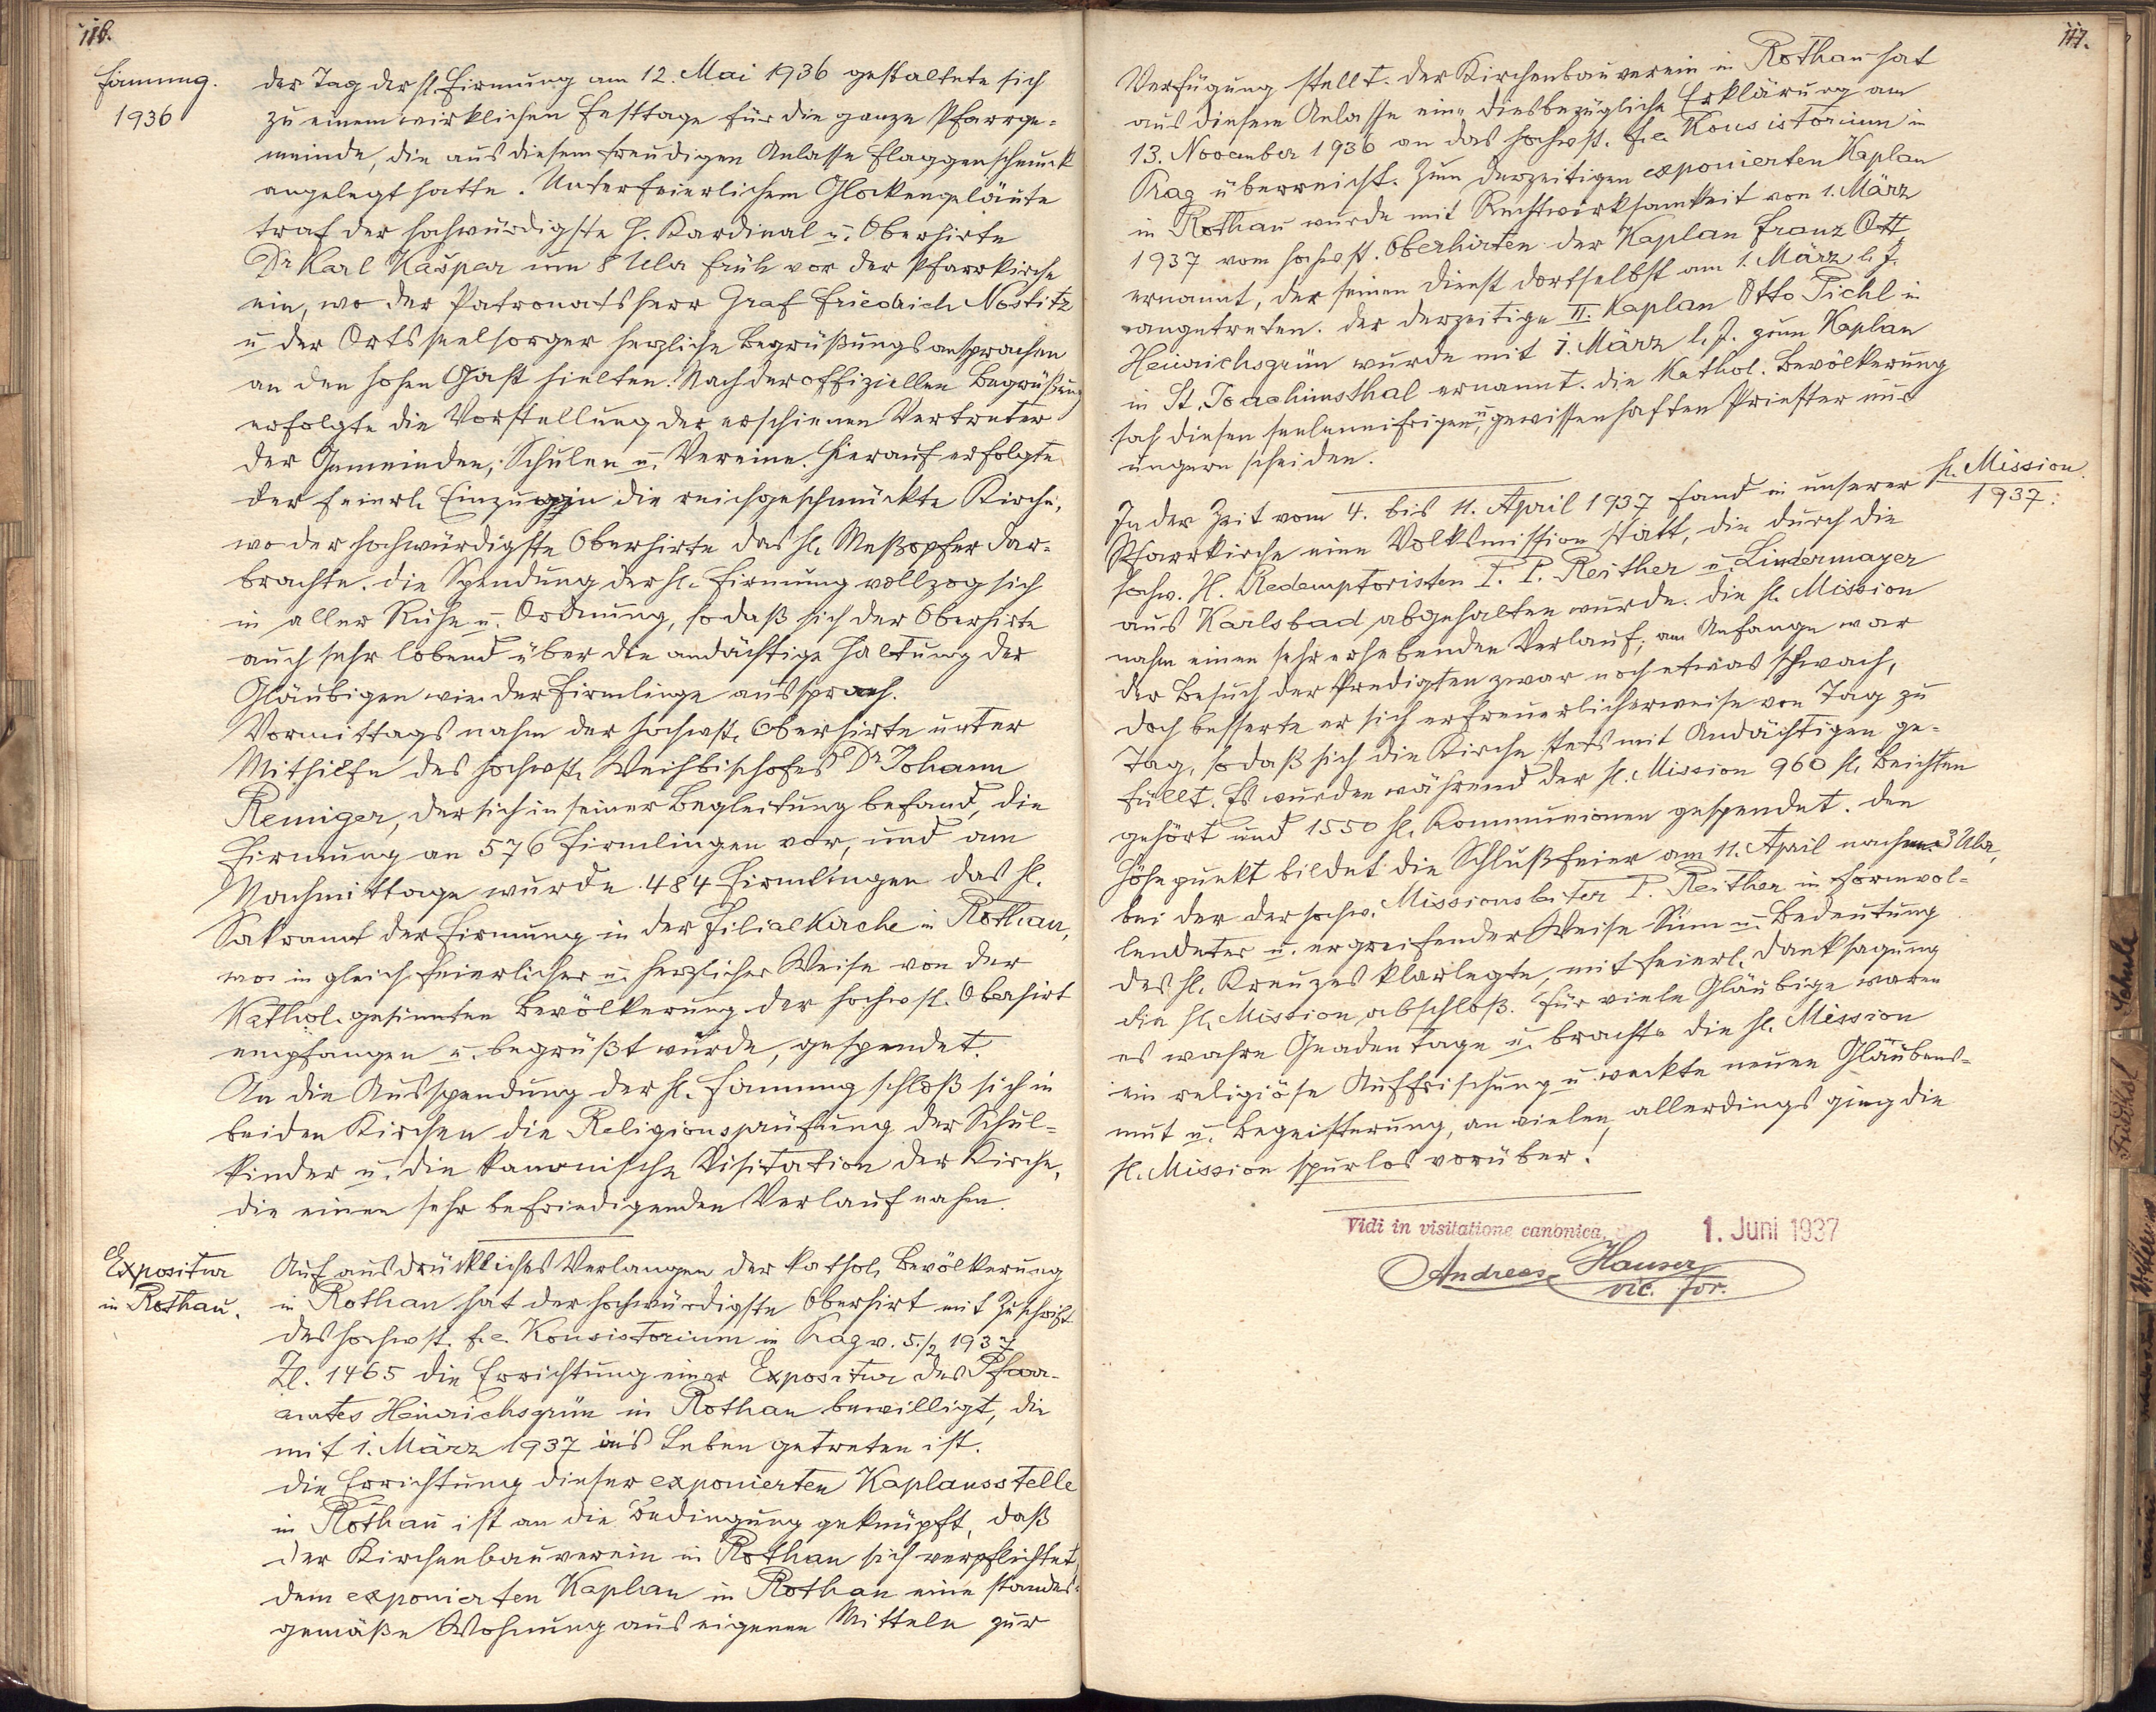 116.
Firmung.
1936
Der Tag der hl. Firmung am 12. Mai 1936 gestaltete sich
zu einem wirklichen Festtage für die ganze Pfarrge-
meinde, die aus diesem freudigen Anlasse Flaggenschmuck
angelegt hatte. Unter feierlichem Glockengeläute
traf der hochwürdigste H. Kardinal u. Oberhirte
Dr Karl Kašpar um 8 Uhr früh vor der Pfarrkirche
ein, wo der Patronatsherr Graf Friedrich Nostitz
u. der Ortsseelsorger herzliche Begrüßungsansprachen
an den hohen Gast hielten. Nach der offiziellen Begrüßung
erfolgte die Vorstellung der erschienen Vertreter
der Gemeinden, Schulen u. Vereine. Hierauf erfolgte
der feierl. Einzug in die reichgeschmückte Kirche,
wo der hochwürdigste Oberhirte das hl. Meßopfer dar-
brachte. Die Spendung der hl. Firmung vollzog sich
in aller Ruhe u. Ordnung, sodaß sich der Oberhirte
auch sehr lobend über die andächtige Haltung der
Gläubigen wie der Firmlinge aussprach.
Vormittags nahm der hochwst. Oberhirte unter
Mithilfe des hochwst. Weihbischofes Dr Johann
Remiger, der sich in seiner Begleitung befand, die
Firmung an 576 Firmlingen vor, und am
Nachmittage wurde 484 Firmlingen das hl.
Sakrament der Firmung in der Filialkirche in Rothau,
wo in gleich feierlicher u. herzlicher Weise von der
kathol. gesinnten Bevölkerung der hochwst. Oberhirt
empfangen u. begrüßt wurde, gespendet.
An die Ausspendung der hl. Firmung schloß sich in
beiden Kirchen die Religionsprüfung der Schul-
kinder u. die kanonische Visitation der Kirche,
die einen sehr befriedigenden Verlauf nahm.
Expositur
in Rothau.
Auf ausdrückliches Verlangen der kathol. Bevölkerung
in Rothau hat der hochwürdigste Oberhirt mit Zuschrift
des hochwst. f. e. Konsistorium in Prag v. 5./2 1937
Zl. 1465 die Errichtung einer Expositur des Pfarr-
amtes Heinrichsgrün in Rothau bewilligt, die
mit 1. März 1937 in's Leben getreten ist.
Die Errichtung dieser exponierten Kaplansstelle
in Rothau ist an die Bedingung geknüpft, daß
der Kirchenbauverein in Rothau sich verpflichtet,
dem exponierten Kaplan in Rothau eine standes-
gemäße Wohnung aus eigenen Mitteln zur
117.
Verfügung stellt. Der Kirchenbauverein in Rothau hat
aus diesem Anlasse eine diesbezügliche Erklärung am
13. November 1936 an das hochwst. f. e. Konsistorium in
Prag überreicht. Zum derzeitigen exponierten Kaplan
in Rothau wurde mit Rechtwirksamkeit von 1. März
1937 vom hochwst. Oberhirten der Kaplan Franz Ott
ernannt, der seinen Dienst dortselbst am 1. März l. J.
angetreten. Der derzeitige II. Kaplan Otto Pichl in
Heinrichsgrün wurde mit 1. März l. J. zum Kaplan
in St. Joachimsthal ernannt. Die kathol. Bevölkerung
sah diesen seeleneifrigen u. gewissenhaften Priester nur
ungern scheiden.
hl. Mission
1937:
In der Zeit vom 4. bis 11. April 1937 fand in unserer
Pfarrkirche eine Volksmission statt, die durch die
hochw. H. Redemptoristen P. P. Reither u. Lindermayer
aus Karlsbad abgehalten wurde. Die hl. Mission
nahm einen sehr erhebenden Verlauf; am Anfange war
der Besuch der Predigten zwar noch etwas schwach,
doch besserte er sich erfreuerlicherweise von Tag zu
Tag, sodaß sich die Kirche stets mit Andächtigen ge-
füllt. Es wurden während der hl. Mission 960 hl. Beichten
gehört und 1550 hl. Kommunionen gespendet. Den
Höhepunkt bildet die Schlußfeier am 11. April nachm. 3 Uhr,
bei der der hochw. Missionsleiter P. Reither in formvol-
lendeter u. ergreifender Weise Sinn u. Bedeutung
des hl. Kreuzes klarlegte, mit feierl. Danksagung
die hl. Mission abschloß. Für viele Gläubige waren
es wahre Gnadentage u. brachte die hl. Mission
ein religiöse Auffrischung u. weckte neuen Glaubens-
mut u. Begeisterung, an vielen, allerdings ging die
hl. Mission spurlos vorüber!
Vidi in visitatione canonica,
1. Juni 1937
Andreas Hauser
vic. for.
Schule
Friedhof